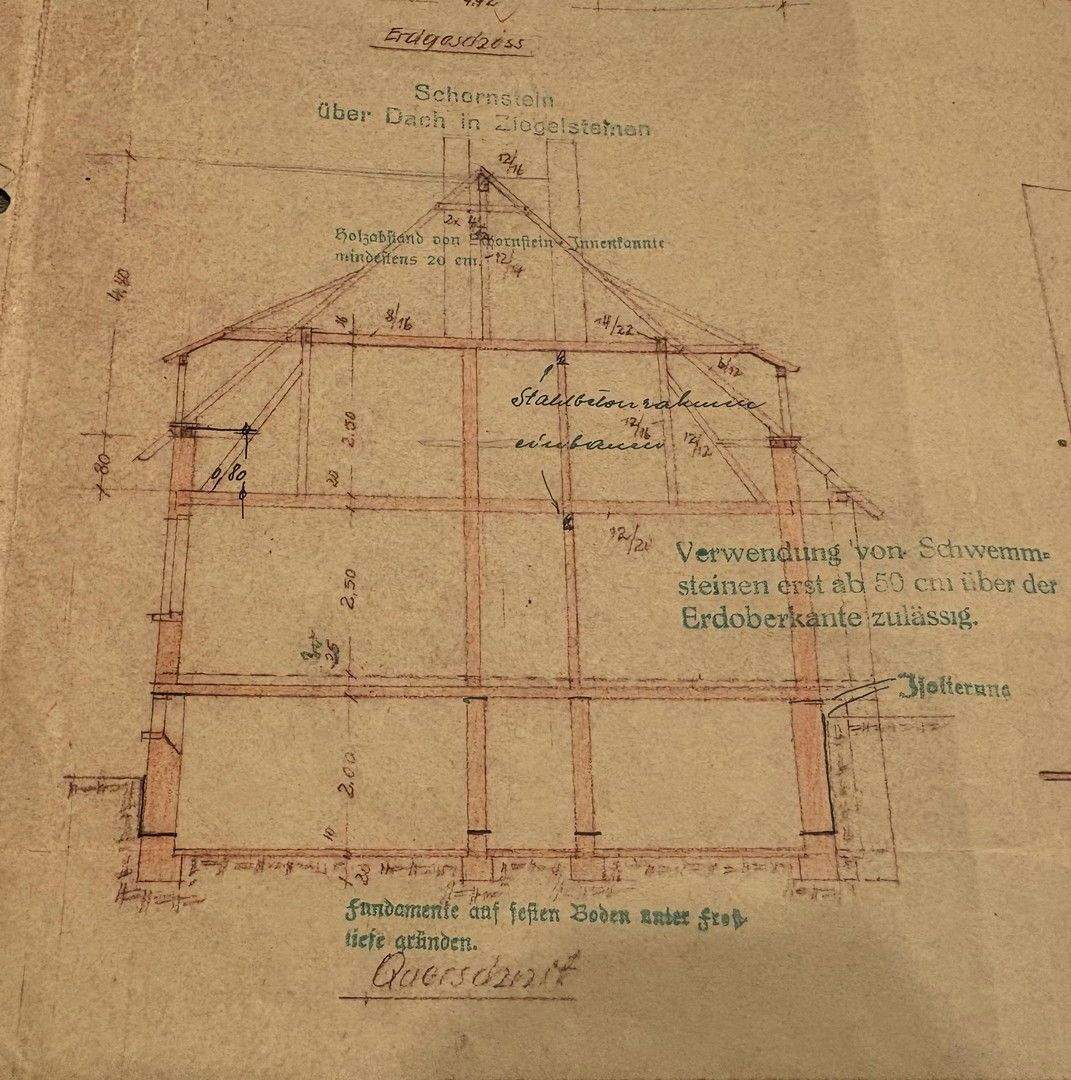 4.92
Erdgeschoss
Schornstein
über Dach in Ziegelsteinen
12/16
2x
Holzabstand von Schornstein-Innenkannte
mindestens 20 cm.
12/
4.40
16
8/16
14/22
6/12
Stahlbetonrahmen
einbauen
12/16
12/12
2.50
80
0,80
20
12/20
Verwendung von Schwemm-
steinen erst ab 50 cm über der
Erdoberkante zulässig.
2,50
25
Isolierung
2.00
10
30
Fundamente auf festen Boden unter Frost-
tiefe gründen.
Querschnitt